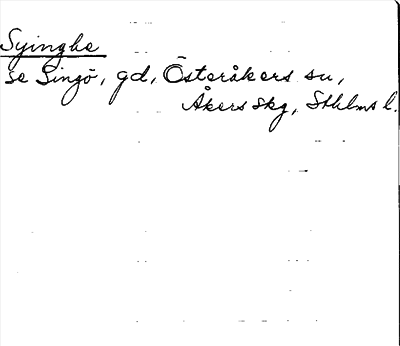 Syinghe
se Singö, gd, Österåkers su,
Åkers skg, Sthlms l.